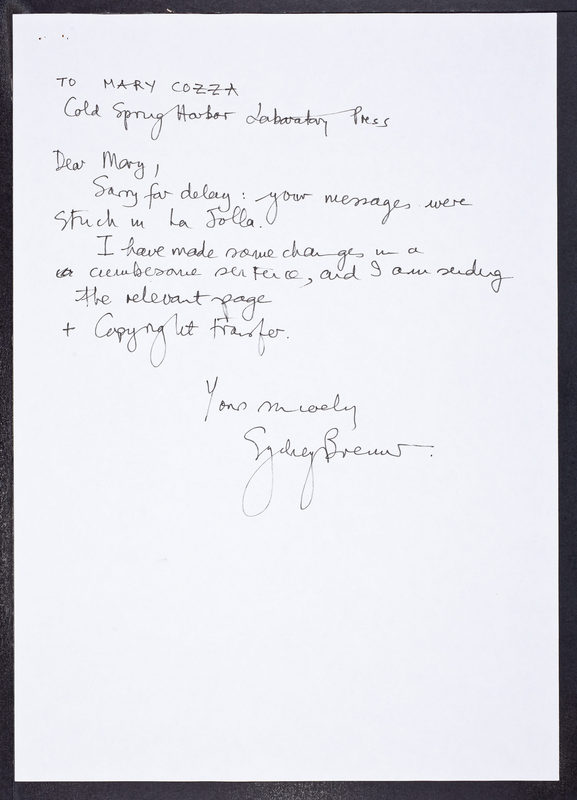 TO MARY COZZA
Cold Spring Harbor Laboratory Press
Dear Mary,
Sorry for delay: your messages were
stuck in La Jolla.
I have made some changes in a
cumbesome sentence, and I am sending
the relevant page
+ Copyright transfer.
Yours sincerely
Sydney Brenner.